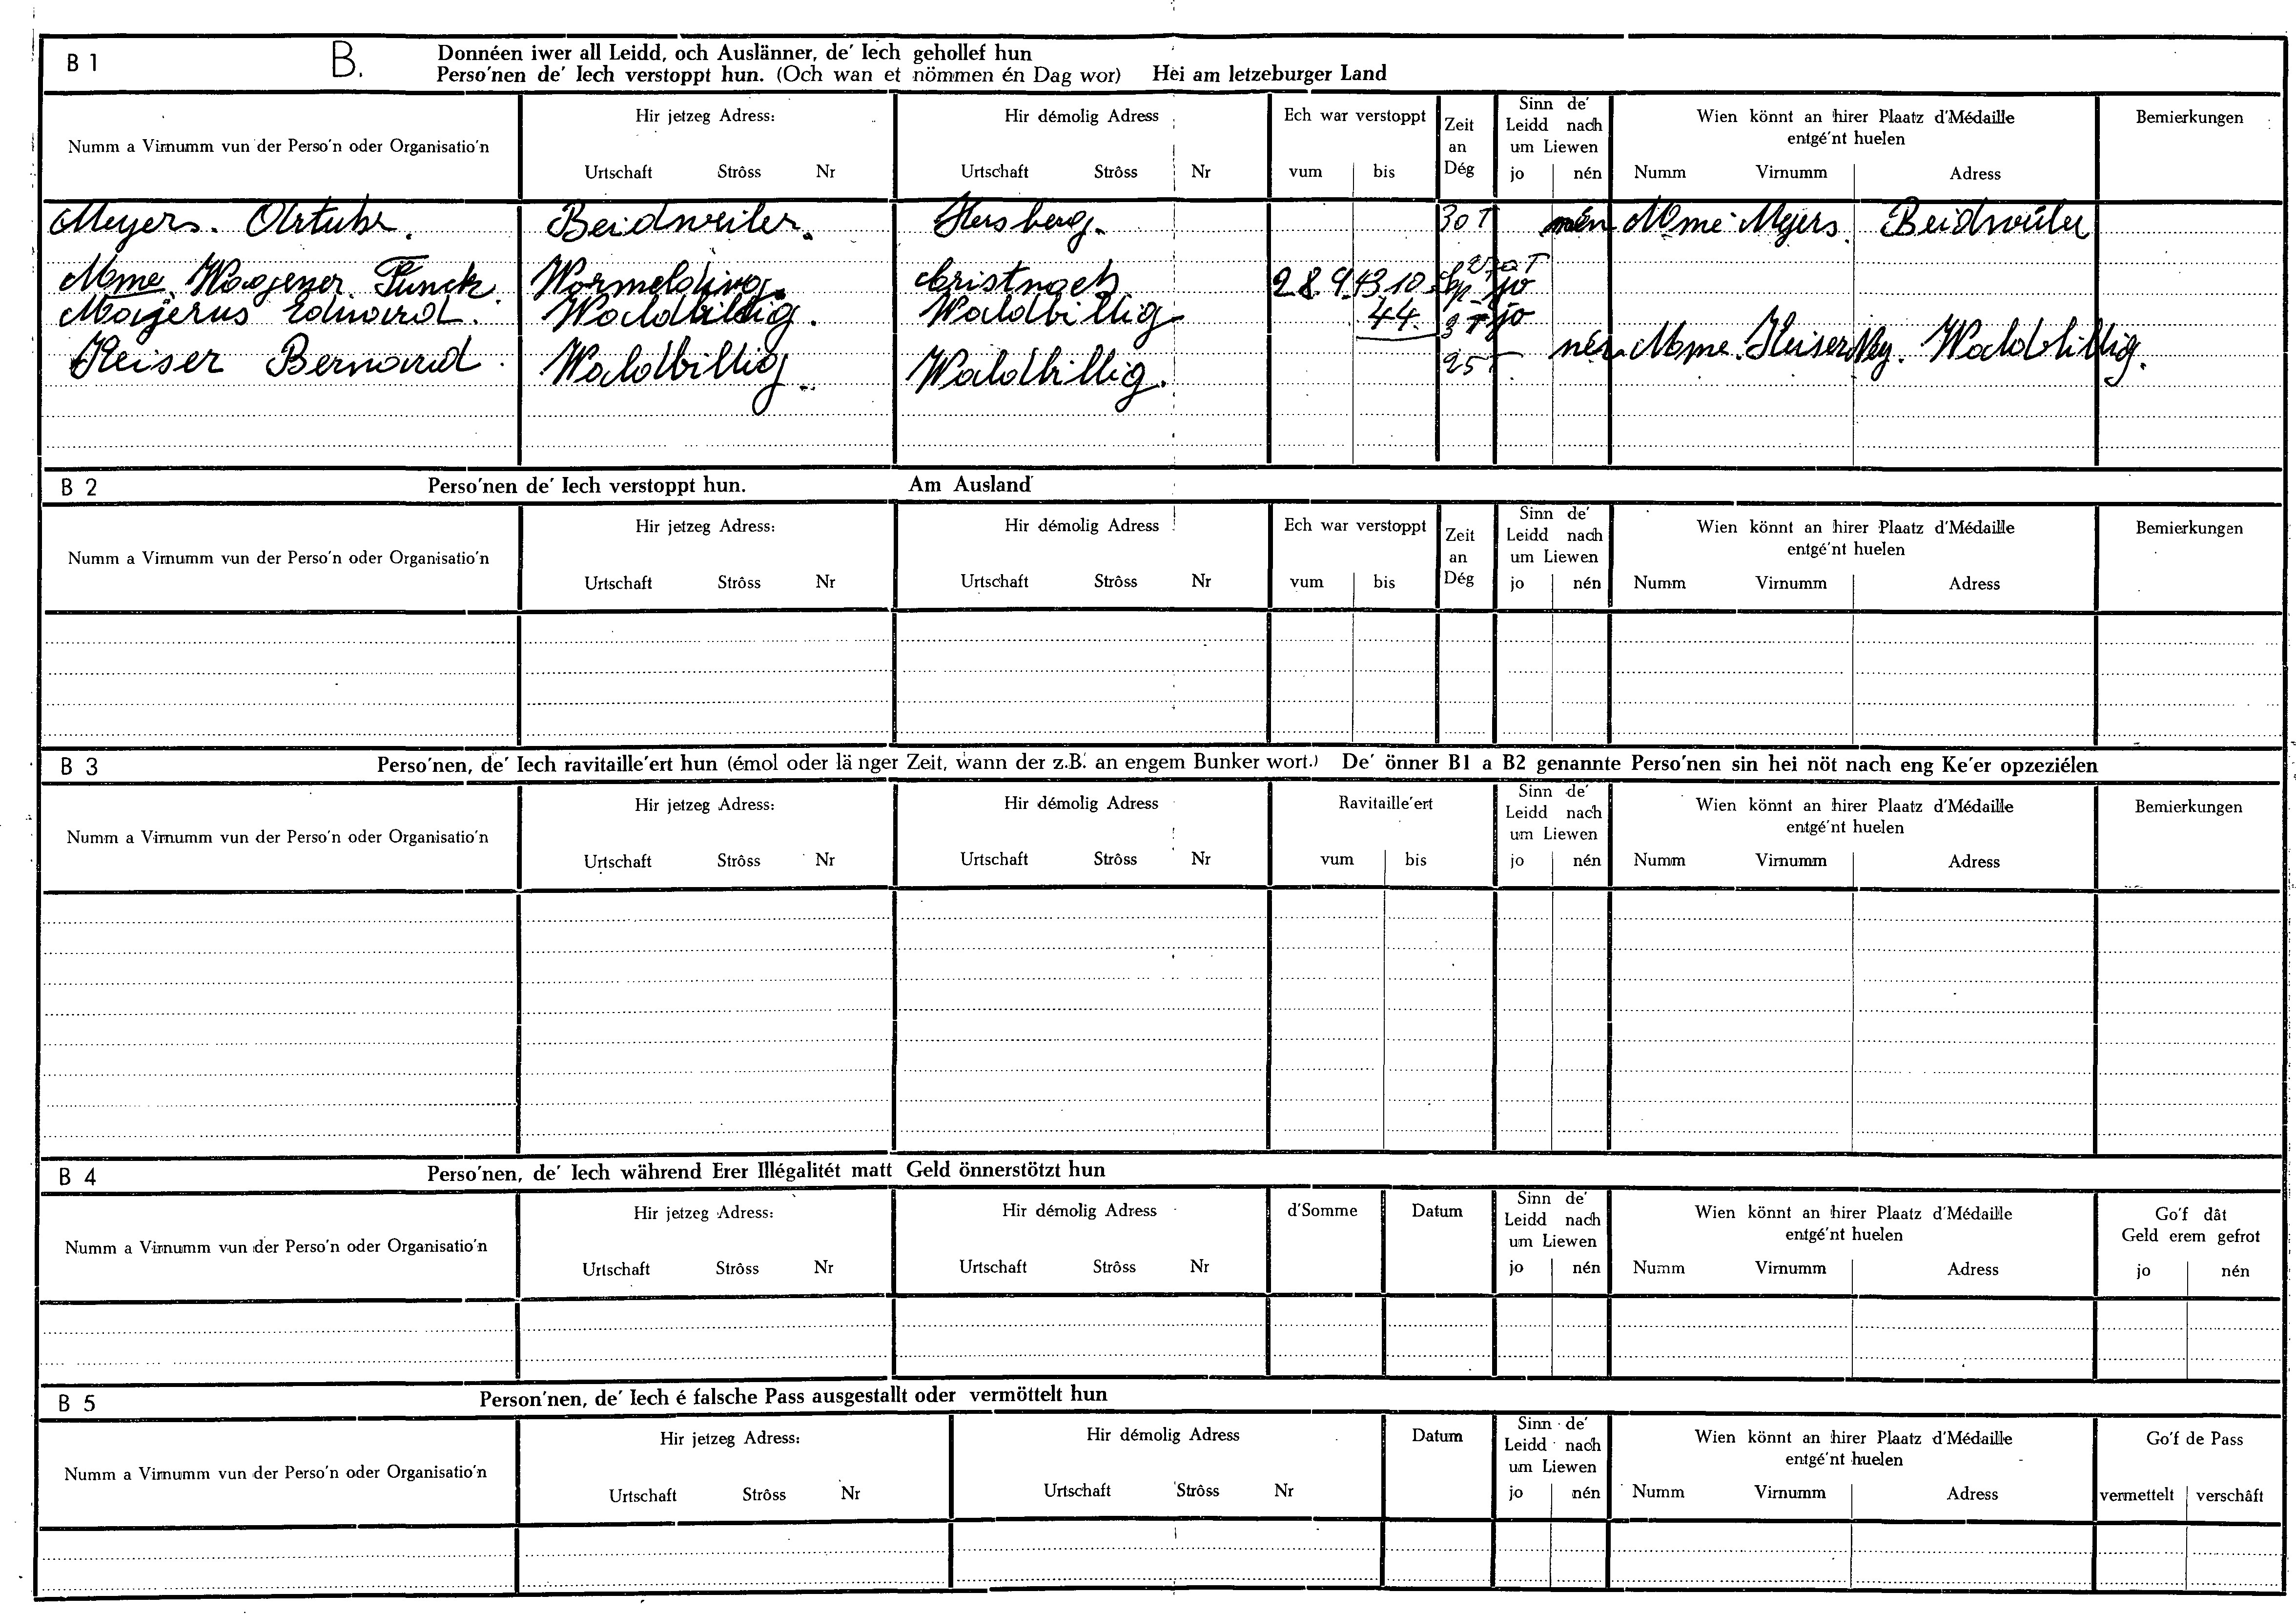 B 1 B. Donnéen iwer all Leidd, och Auslänner, de' Iech gehollef hun
Perso'nen de' Iech verstoppt hun. (Och wan et nömmen én Dag wor) Hei am letzeburger Land
Numm a Virnumm vun der Perso'n oder Organisatio'n
Hir jetzeg Adress:
Urtschaft Strôss Nr
Hir démolig Adress
Urtschaft Strôss Nr
Ech war verstoppt
vum bis
Zeit
an
Dég
Sinn de'
Leidd nach
um Liewen
jo nén
Wien könnt an hirer Plaatz d'Médaille
entgé'nt huelen
Numm Virnumm Adress
Bemierkungen
Meyers. Beidweiler. Hersberg. 30 T nén Mme Meyers. Beidweiler
Mme Wagener Funck. Wormelding. Christnach 28.9.43 10 jo
Majerus Edouard. Waldbillig. Waldbillig 44. 3 T jo
Keiser Bernard. Waldbillig. Waldbillig. 25 T nén Mme. Keiser Ney. Waldbillig.
B 2 Perso'nen de' Iech verstoppt hun. Am Ausland
Numm a Virnumm vun der Perso'n oder Organisatio'n
Hir jetzeg Adress:
Urtschaft Strôss Nr
Hir démolig Adress
Urtschaft Strôss Nr
Ech war verstoppt
vum bis
Zeit
an
Dég
Sinn de'
Leidd nach
um Liewen
jo nén
Wien könnt an hirer Plaatz d'Médaille
entgé'nt huelen
Numm Virnumm Adress
Bemierkungen
B 3 Perso'nen, de' Iech ravitaille'ert hun (émol oder lä nger Zeit, wann der z.B. an engem Bunker wort.) De' önner B1 a B2 genannte Perso'nen sin hei nöt nach eng Ke'er opzeziélen
Numm a Virnumm vun der Perso'n oder Organisatio'n
Hir jetzeg Adress:
Urtschaft Strôss Nr
Hir démolig Adress
Urtschaft Strôss Nr
Ravitaille'ert
vum bis
Sinn de'
Leidd nach
um Liewen
jo nén
Wien könnt an hirer Plaatz d'Médaille
entgé'nt huelen
Numm Virnumm Adress
Bemierkungen
B 4 Perso'nen, de' Iech während Erer Illégalitét matt Geld önnerstötzt hun
Numm a Virnumm vun der Perso'n oder Organisatio'n
Hir jetzeg Adress:
Urtschaft Strôss Nr
Hir démolig Adress
Urtschaft Strôss Nr
d'Somme
Datum
Sinn de'
Leidd nach
um Liewen
jo nén
Wien könnt an hirer Plaatz d'Médaille
entgé'nt huelen
Numm Virnumm Adress
Go'f dât
Geld erem gefrot
jo nén
B 5 Person'nen, de' Iech é falsche Pass ausgestallt oder vermöttelt hun
Numm a Virnumm vun der Perso'n oder Organisatio'n
Hir jetzeg Adress:
Urtschaft Strôss Nr
Hir démolig Adress
Urtschaft Strôss Nr
Datum
Sinn de'
Leidd nach
um Liewen
jo nén
Wien könnt an hirer Plaatz d'Médaille
entgé'nt huelen
Numm Virnumm Adress
Go'f de Pass
vermettelt verschâft